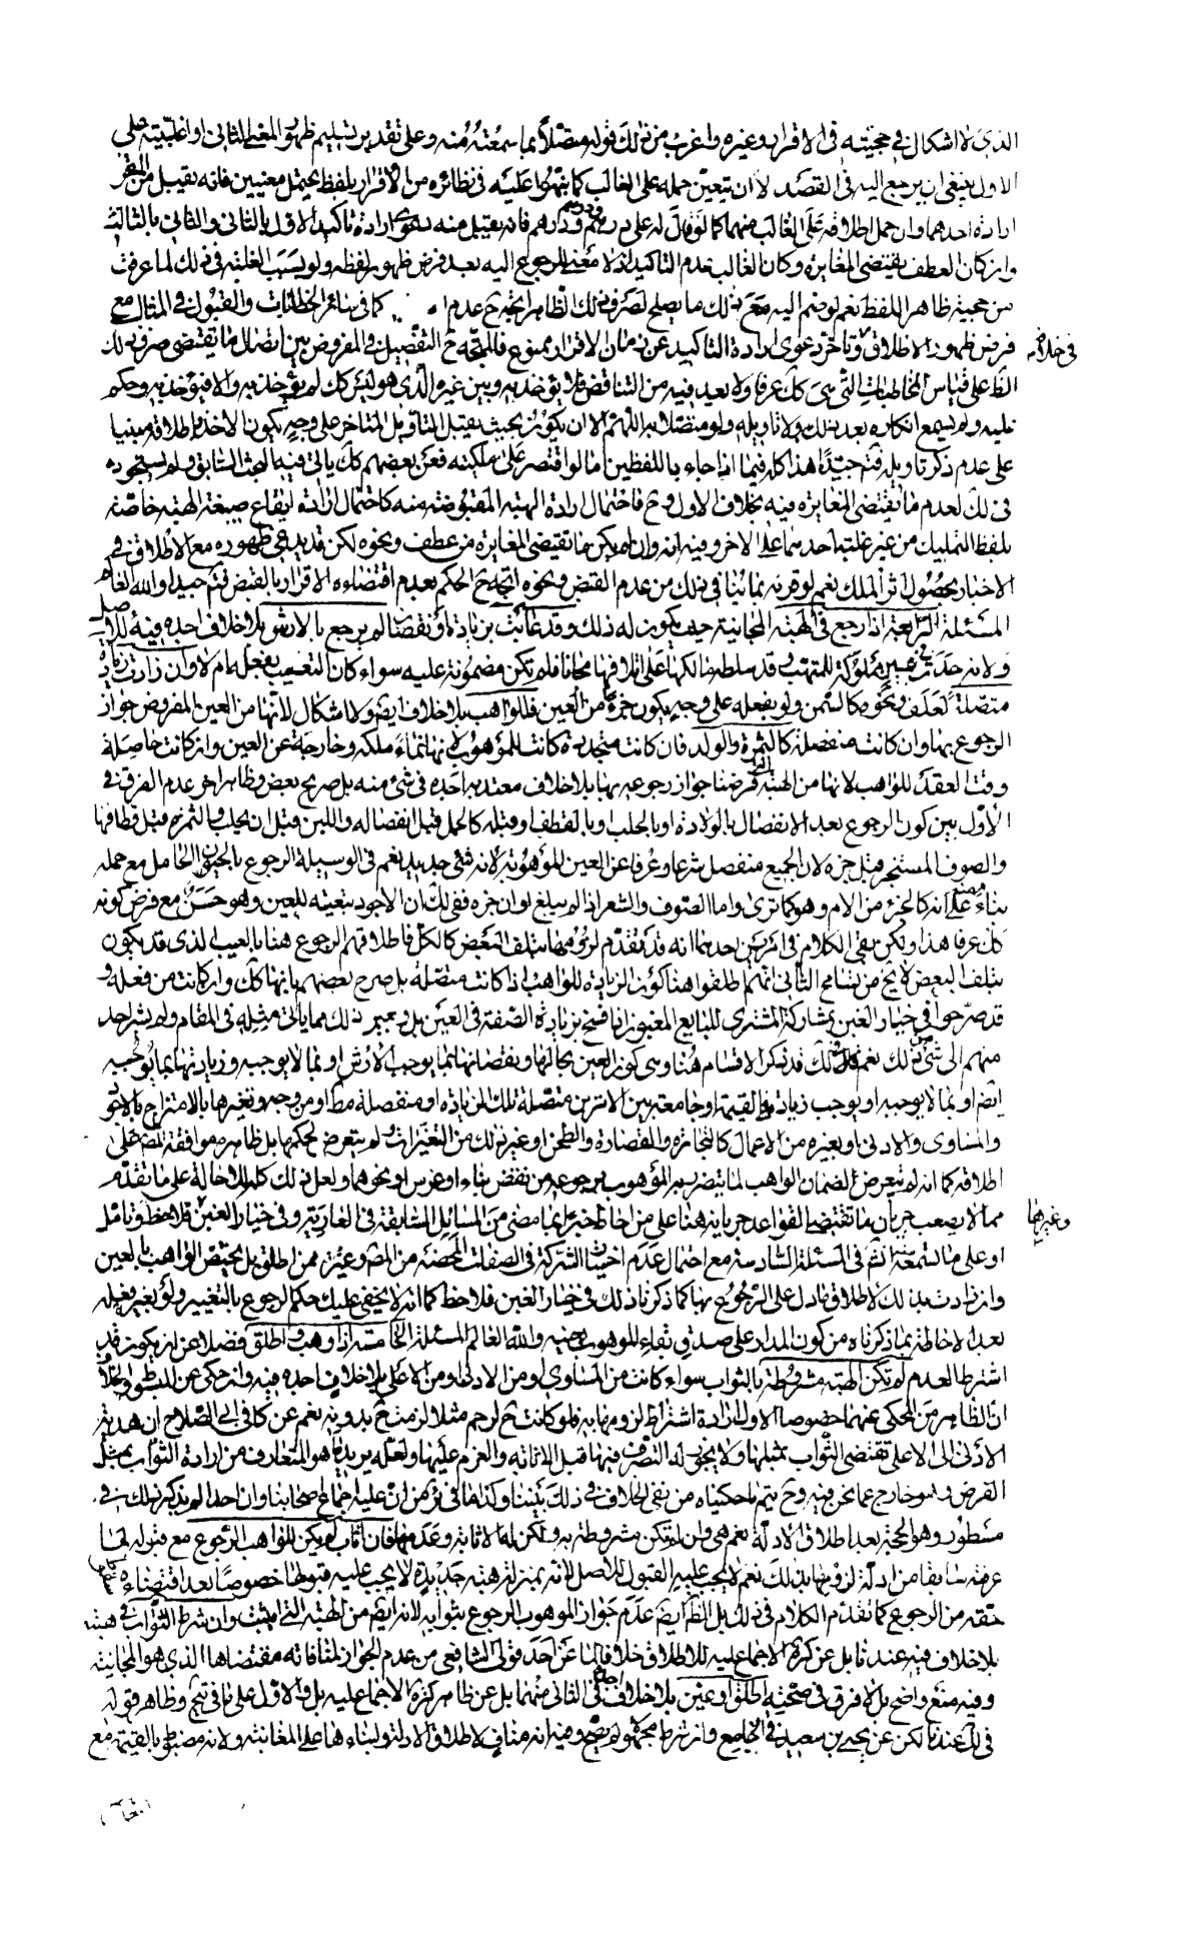 الذى لا اشكال فى حجيته فى الاقرار وغيره واغرب من ذلك قوله متصلا بما سمعته منه وعلى تقدير تسليم ظهور المعنى الثانى او اغلبيته على
الاول ينبغى ان يرجع اليه فى القصد لا ان يتعين حمله على الغالب كما نبهوا عليه فى نظائره من الاقرار بلفظ يحتمل معنيين فانه يقبل من المقر
ارادة احدهما وان حمل اطلاقه على الغالب منهما كما لو قال له على درهم ودرهم ودرهم فانه يقبل منه دعوى ارادة تاكيد الاول بالثانى والثانى بالثالث
وان كان العطف يقتضى المغايرة وكان الغالب عدم التاكيد اذ لا معنى للرجوع اليه بعد فرض ظهور لفظه ولو بسبب الغلبة فى ذلك لما عرفت
من حجية ظاهر اللفظ نعم لو ضم اليه مع ذلك ما يصلح لصرف ذلك الظاهر اتجه ح عدم كما فى سائر الخطابات والقبول فى المثال مع
فرض ظهور الاطلاق فى خلافه وتاخر دعوى ارادة التاكيد عن زمان الاقرار ممنوع فالمتجه ح التفصيل فى المفروض بين اتصال ما يقتضى صرف ذلك
الظ على قياس المخاطبات التى هى كك عرفا ولا يعد فيه من التناقض فلا يؤخذ به وبين غيره الذى هو ليس كك لم يؤخذ به والا فيؤخذ به وحكم
عليه ولم يسمع انكاره بعد ذلك ولا تاويله ولو متصلا به اللهم الا ان يكون بحيث يقبل التاويل المتاخر على وجه يكون الاخذ باطلاقه مبنيا
على عدم ذكر تاويله فتم جيدا هذا كله فيما اذا جاء باللفظين اما لو اقتصر على ملكيته فعن بعضهم كك ياتى فيه البحث السابق ولم يستجوده
فى لك لعدم ما يقتضى المغايرة فيه بخلاف الاول وح فاحتمال ارادة الهبة المقبوضة منه كاحتمال ارادة ايقاع صيغة الهبة خاصة
بلفظ التمليك من غير غلبة احدهما على الاخر وفيه انه وان لم يكن ما يقتضى المغايرة من عطف ونحوه لكن قد يدعى ظهوره مع الاطلاق فى
الاخبار بحصول اثر الملك نعم لو قرنه بما ينافى ذلك من عدم القبض ونحوه اتجه ح الحكم بعدم اقتضاءه الاقرار بالقبض فتم جيدا والله العالم
المسئلة الرابعة اذا رجع فى الهبة المجانية حيث يكون له ذلك وقد عابت بزيادة او نقصان لم يرجع بالارش بلا خلاف اجده فيه للاصل
ولانه حدث فى عين مملوكة للمتهب وقد سلطه مالكها على اتلافها مجانا فلم تكن مضمونة عليه سواء كان التعيب بفعله ام لا وان زادت زيادة
متصلة لعلف ونحوه كالسمن ولو بفعله على وجه يكون جزء من العين فللواهب بلا خلاف ايضا ولا اشكال لانها من العين المفروض جواز
الرجوع بها وان كانت منفصلة كالثمرة والولد فان كانت متجددة كانت للموهوب له لانها نماء ملكه وخارجة عن العين وان كانت حاصلة
وقت العقد كانت للواهب لانها من الهبة التى فرضنا جواز رجوعه بها بلا خلاف معتد به اجده فى شئ منه بل صريح بعض وظاهر اخر عدم الفرق فى
الاول بين كون الرجوع بعد الانفصال بالولادة او بالحلب وبالقطف او قبله كالحمل قبل انفصاله واللبن قبل ان يحلب والثمرة قبل قطافها
والصوف المستجز قبل جزه لان الجميع منفصل شرعا وعرفا عن العين الموهوبة لانه شئ جديد نعم فى الوسيلة الرجوع بالحيوان الحامل مع حمله
بناء منه على انه كالجزء من الام وهو كما ترى واما الصوف والشعر اذا لم يبلغ اوان جزه ففى لك ان الاجود تبعيته للعين وهو حسن مع فرض كونه
كك عرفا هذا ولكن بقى الكلام فى امرين احدهما انه قد تقدم لزومها بتلف البعض كالكل فاطلاقهم الرجوع هنا بالعيب الذى قد يكون
بتلف البعض لا يخ من تسامح الثانى انهم اطلقوا هنا كون الزيادة للواهب اذا كانت متصلة بل صرح بعضهم بانها كك وان كانت من فعله و
قد صرحوا فى خيار الغبن بمشاركة المشترى للبايع المغبون اذا فسخ بزيادة الصفة فى العين بل وغير ذلك مما ياتى مثله فى المقام ولم يشر احد
منهم الى شئ من ذلك نعم فى لك قد ذكر الاقسام هنا وهى كون العين بحالها ونقصانها بما يوجب الارش او بما لا يوجبه وزيادتها بما يوجبه
ايضا او بما لا يوجبه او يوجب زيادة القيمة او جامعة بين الامرين متصلة تلك الزيادة او منفصلة مط او من وجه وتغيرها بالامتزاج بالاجود
والمساوى والادنى او بغيره من الاعمال كالنجارة والقصارة والطحن او غير ذلك من التغيرات ولم يتعرض لحكمها بل ظاهره موافقة المصنف على
اطلاقه كما انه لم يتعرض لضمان الواهب لما يتضرر به الموهوب برجوعه من نقض بناء او غرس او نحوهما ولعل ذلك كله للاحالة على ما تقدم
مما لا يصعب جريان ما تقتضيه القواعد جريانه هنا على من احاط خبرا بما مضى من المسائل السابقة فى العارية وفى خيار الغبن وغيرها فلاحظ وتامل
او على ما تسمعه انش فى المسئلة السادسة مع احتمال عدم اثبات الشركة فى الصفات المحضة من المصنف وغيره ممن اطلق بل يختص الواهب بالعين
وان زادت بذلك لاطلاق ما دل على الرجوع بها كما ذكرنا ذلك فى خيار الغبن فلاحظ كما انه لا يخفى عليك حكم الرجوع بالتغيير ولو بغير فعله
بعد الاحاطة بما ذكرناه من كون المدار على صدق بقاء الموهوب بعينه والله العالم المسئلة الخامسة اذا وهب واطلق فضلا عن ان يكون قد
اشترط العدم لم تكن الهبة مشروطة بالثواب سواء كانت من المساوى او من الادنى او من الاعلى بلا خلاف اجده فيه وان حكى عن المبسوط والخلاف
ان الظاهر من المحكى عنهما خصوصا الاول ارادة اشتراط لزومها به فلو كانت ح لرحم مثلا لزمت ح بدونه نعم عن كافى ابى الصلاح ان هدية
الادنى الى الاعلى تقتضى الثواب بمثلها ولا يجوز له التصرف فيها قبل الاثابة والعزم عليها ولعله يريد ما هو المتعارف من ارادة الثواب بمثل
القرض والا هو خارج عما نحن فيه وح يتم ما حكيناه من نفى الخلاف فى ذلك بيننا وكذا ما فى من ان عليه اجماع اصحابنا وان احدا لم يذكر ذلك فى
مسطور وهو الحجة بعد اطلاق الادلة نعم هى وان لم تكن مشروطة به ولكن له الاثابة وعدمها فان اثاب لم يكن للواهب الرجوع مع قبوله لما
عرفته سابقا من ادلة لزومها بذلك نعم لا يجب عليه القبول للاصل لانه بمنزلة هبة جديدة لا يجب عليه قبولها خصوصا بعد اقتضاءه اسقاط
حقه من الرجوع كما تقدم الكلام فى ذلك بل الظ ايضا عدم جواز الموهوب الرجوع بثوابه لانه ايضا من الهبة التى اثيبت وان شرط الثواب فى هبته
بلا خلاف فيه عندنا بل عن كره الاجماع عليه للاطلاق خلافا لما عن احد قولى الشافعى من عدم الجواز لمنافاته مقتضاها الذى هو المجانية
وفيه منع واضح بل لا فرق فى صحتها اطلق او عين بلا خلاف اجده فى الثانى منهما بل عن ظاهر كره الاجماع عليه بل والاول على ما فى تيح وظاهر قوله
فى لك عندنا لكن عن يحيى بن سعيد فى الجامع وان شرط مجهولا لم يصح وفيه انه مناف لاطلاق الادلة ولبناء هذا على المغابنة ولانه منضبط بالقيمة مع